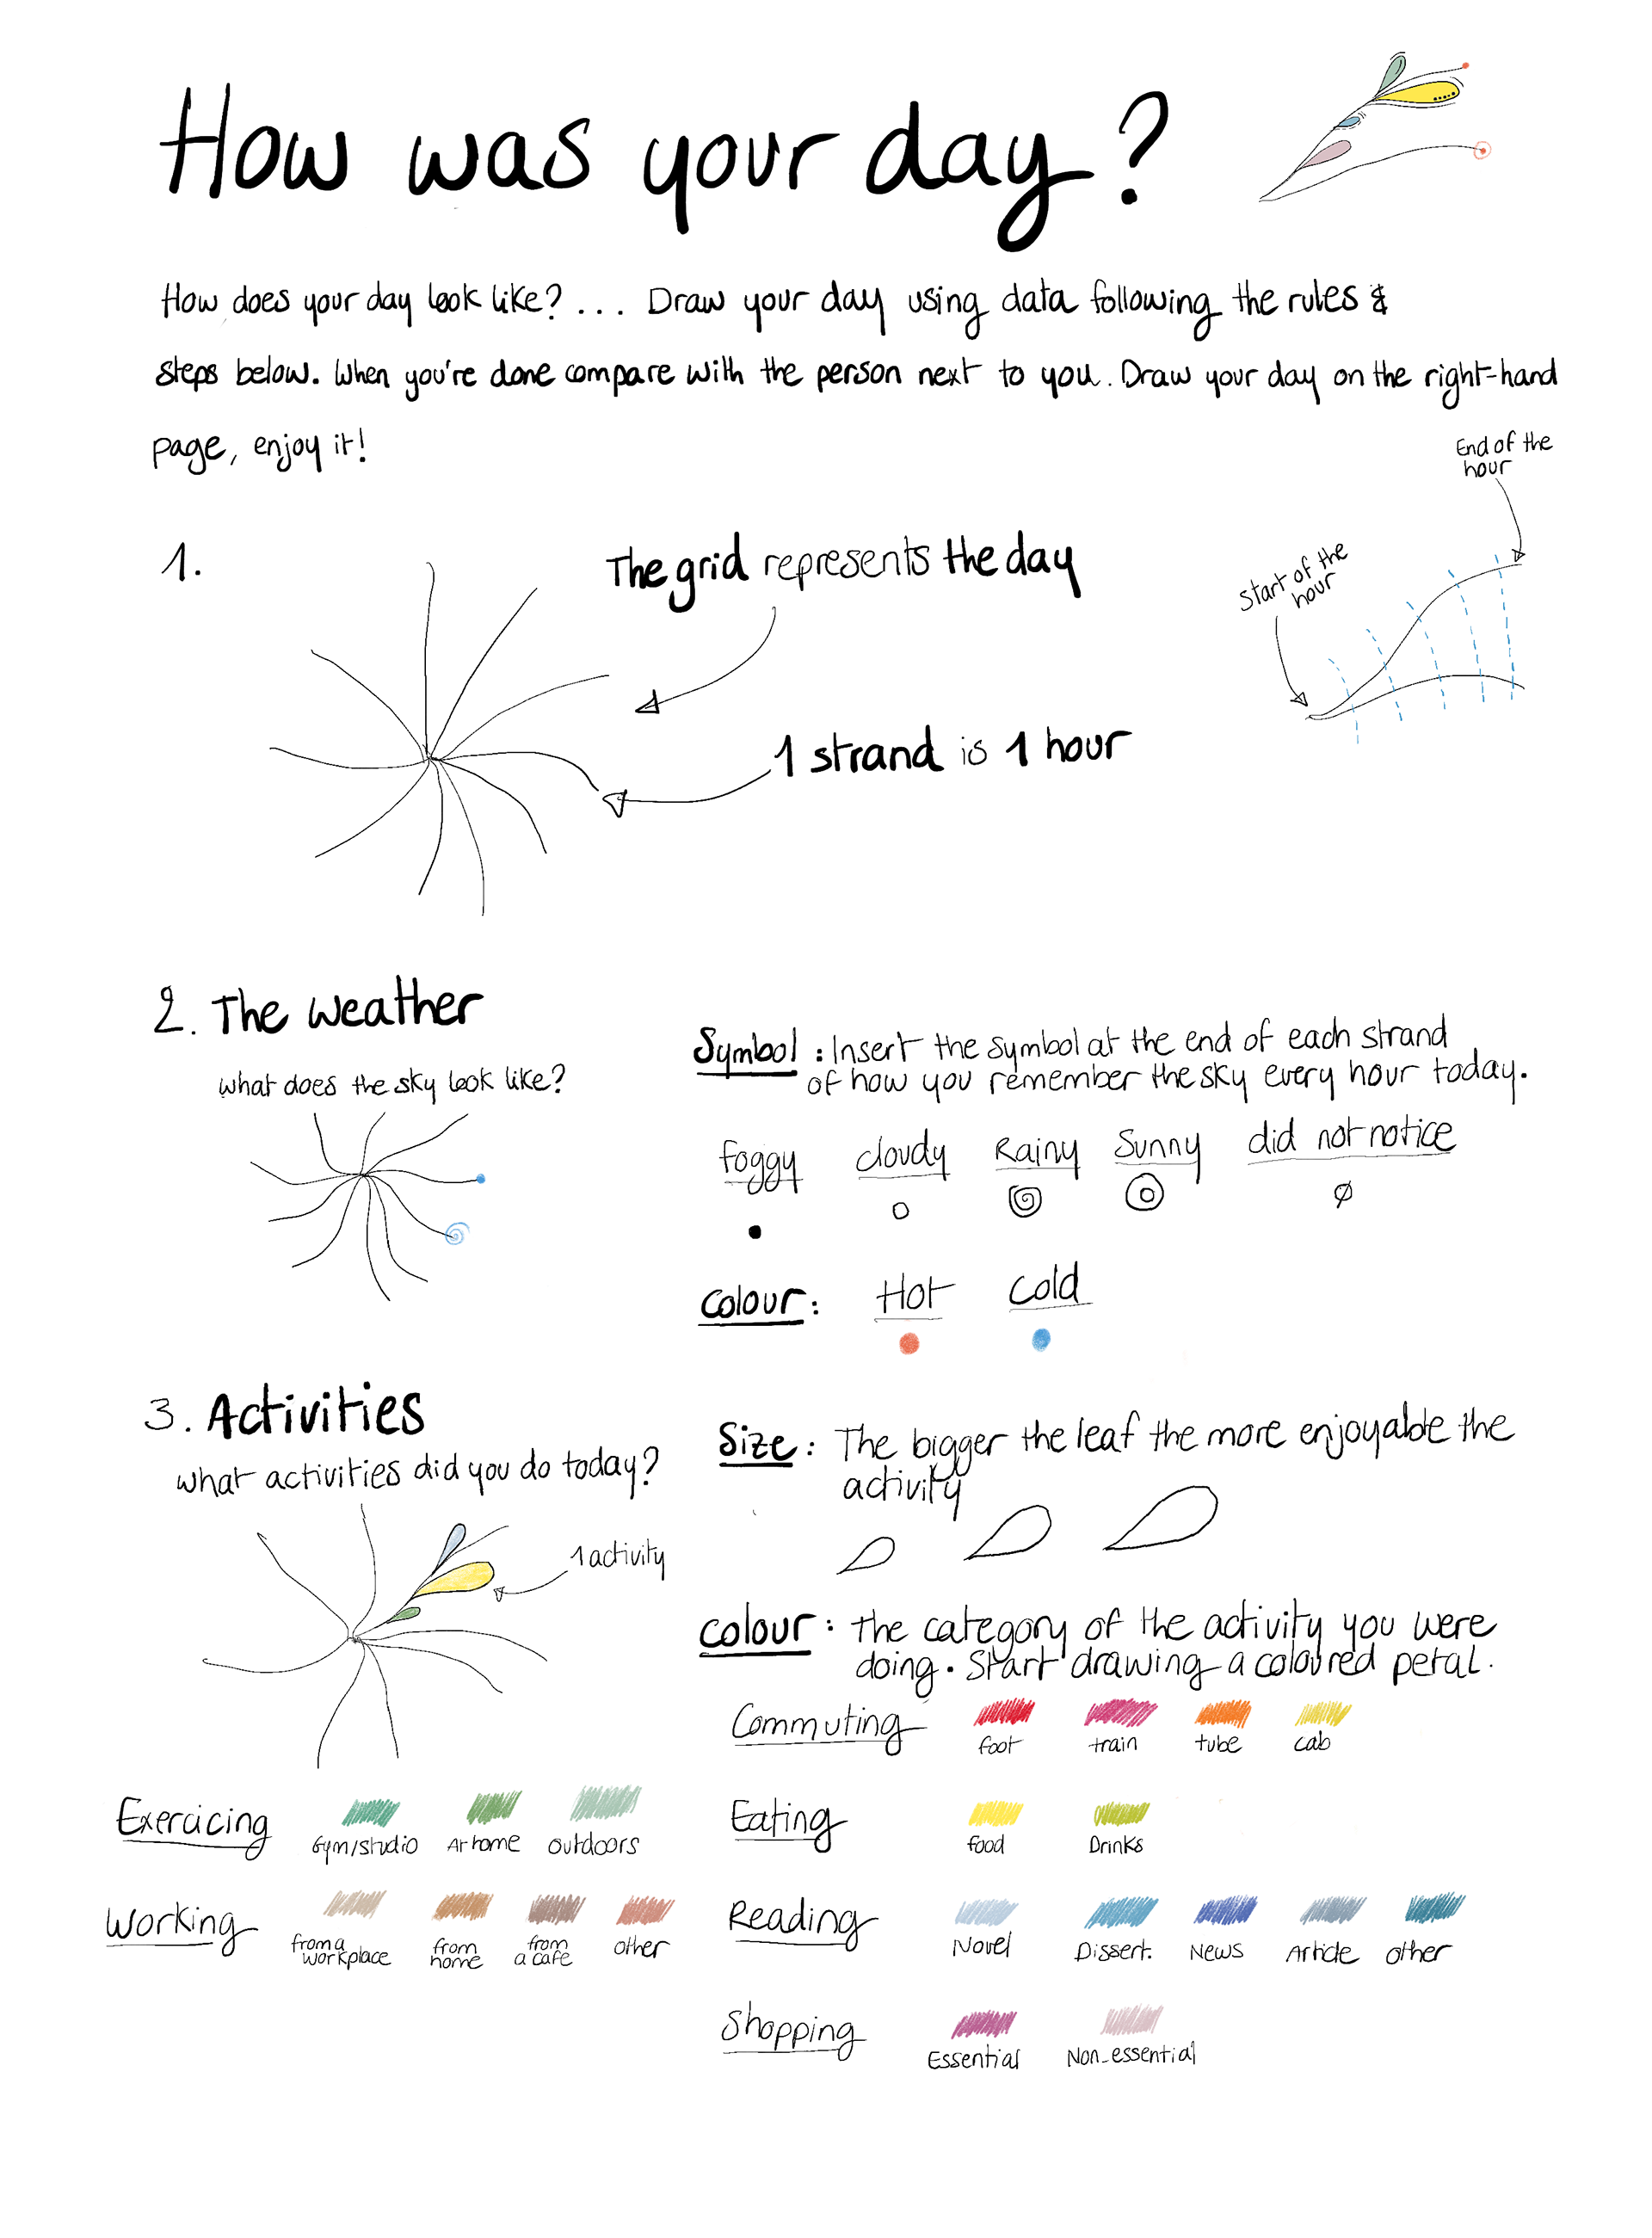 How was your day?
How does your day look like? ... Draw your day using data following the rules &
steps below. When you're done compare with the person next to you. Draw your day on the right-hand
page, enjoy it!
1.
The grid represents the day
1 strand is 1 hour
Start of the
hour
End of the
hour
2. The weather
what does the sky look like?
Symbol : Insert the symbol at the end of each strand
of how you remember the sky every hour today.
foggy cloudy Rainy Sunny did not notice
colour : Hot cold
3. Activities
what activities did you do today?
1 activity
Size : The bigger the leaf the more enjoyable the
activity
colour : The category of the activity you were
doing. Start drawing a coloured petal.
Commuting
foot train tube cab
Exercicing
Gym/studio At home outdoors
Eating
food Drinks
Working
from a
workplace
from
home
from
a cafe
other
Reading
Novel Dissert. News Article other
Shopping
Essential Non-essential